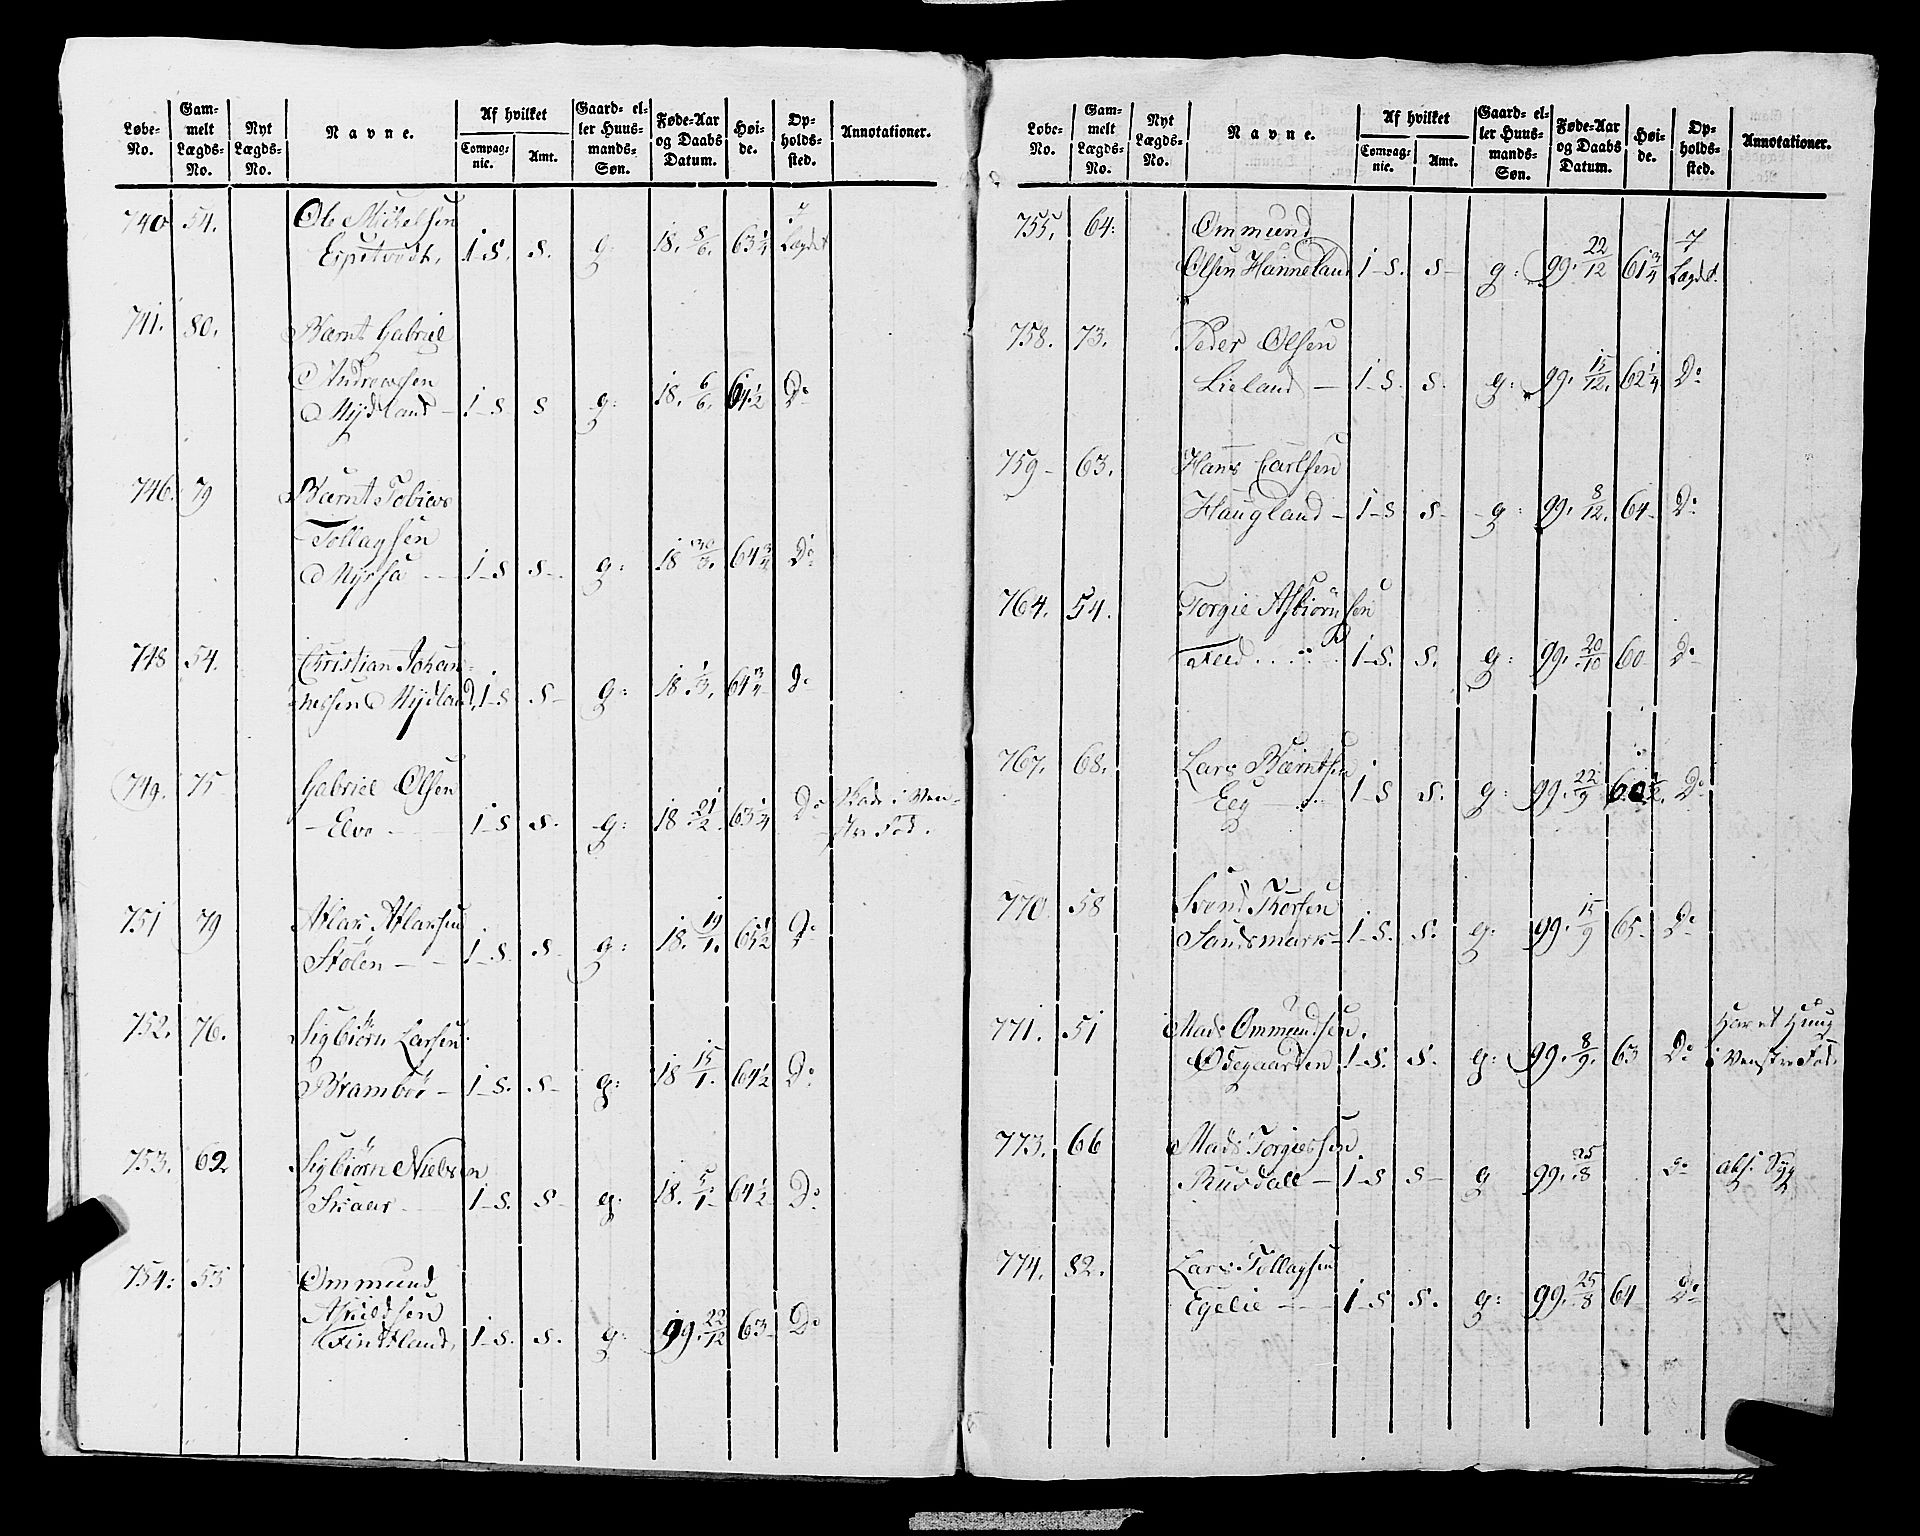 Løbe-No. Gam-melt Lægds-No. Nyt Lægds-No. Navne. Af hvilket Compag-nie. Amt. Gaard- el-ler Huus-mands-Søn. Føde-Aar og Daabs Datum. Høi-de. Op-holds-sted. Annotationer.
740 54. Ole Michelsen I
1-S. S. g. 18. 8/6. 63 1/4 Lægdet
741. 80. Bærnt Gabriel
Andreassen
Mydland - 1-S S g: 18. 6/6. 64 1/2 Do
746. 79 Bærnt Tobias
Tollagsen
1-S S- g: 18 30/3. 64 3/4 Do
748 54. Christian Johan-
nessen Mydland, 1-S S- g: 18. 1/3, 64 3/4 Do
749. 75 Gabriel Olsen Skade i Ven-
Elve 1-S S. g: 18 21/2. 63 1/4 Do stre Fod.
751 79 Atlak Atlaksen
Stølen - - 1-S. S. g: 18. 19/1. 65 1/2 Do
752. 76. Sigbiørn Larsen
Brambøe - 1-S. S- g: 18 15/1. 64 1/2 Do
753. 62 Sigbiørn Nielsen
1-S. S- g: 18. 5/1- 64 1/2 Do
754: 55 Ommund
Askildsen
Findtland, 1-S. S. g: 99. 22/12 63- Do
Løbe-No. Gam-melt Lægds-No. Nyt Lægds-No. Navne. Af hvilket Compag-nie. Amt. Gaard- el-ler Huus-mands-Søn. Føde-Aar og Daabs Datum. Høi-de. Op-holds-sted. Annotationer.
755. 64: Ommund I
Olsen Hanneland 1-S. S- g: 99. 22/12 61 3/4 Lægdet.
758. 73. Peder Olsen
Lieland - 1-S. S. g: 99. 15/12. 62 1/4 Do
759- 63. Hans Carlsen
Haugland - 1-S S- g: 99. 8/12. 64- Do
764. 54. Torgie Asbiørnsen
1-S. S. g: 99. 20/10 60 Do
767. 68. Lars Bærntsen
Eeg 1-S S. g: 99. 22/9 60 1/2. Do
770 58 Svend Thorsen
Sandsmark- 1-S. S. g: 99. 15/9 65- Do
771. 51 Mads Ommundsen Har et Hug
Ødegaarden 1-S. S. g: 99. 8/9. 63 Do i Venstre Fod.
773. 66 Mads Torgiessen
Rusdall - 1-S S- g 99. 25/8 Do abs: Syg
774. 82. Lars Tollagsen
Egelie - - 1-S S. g: 99. 25/8 64 Do